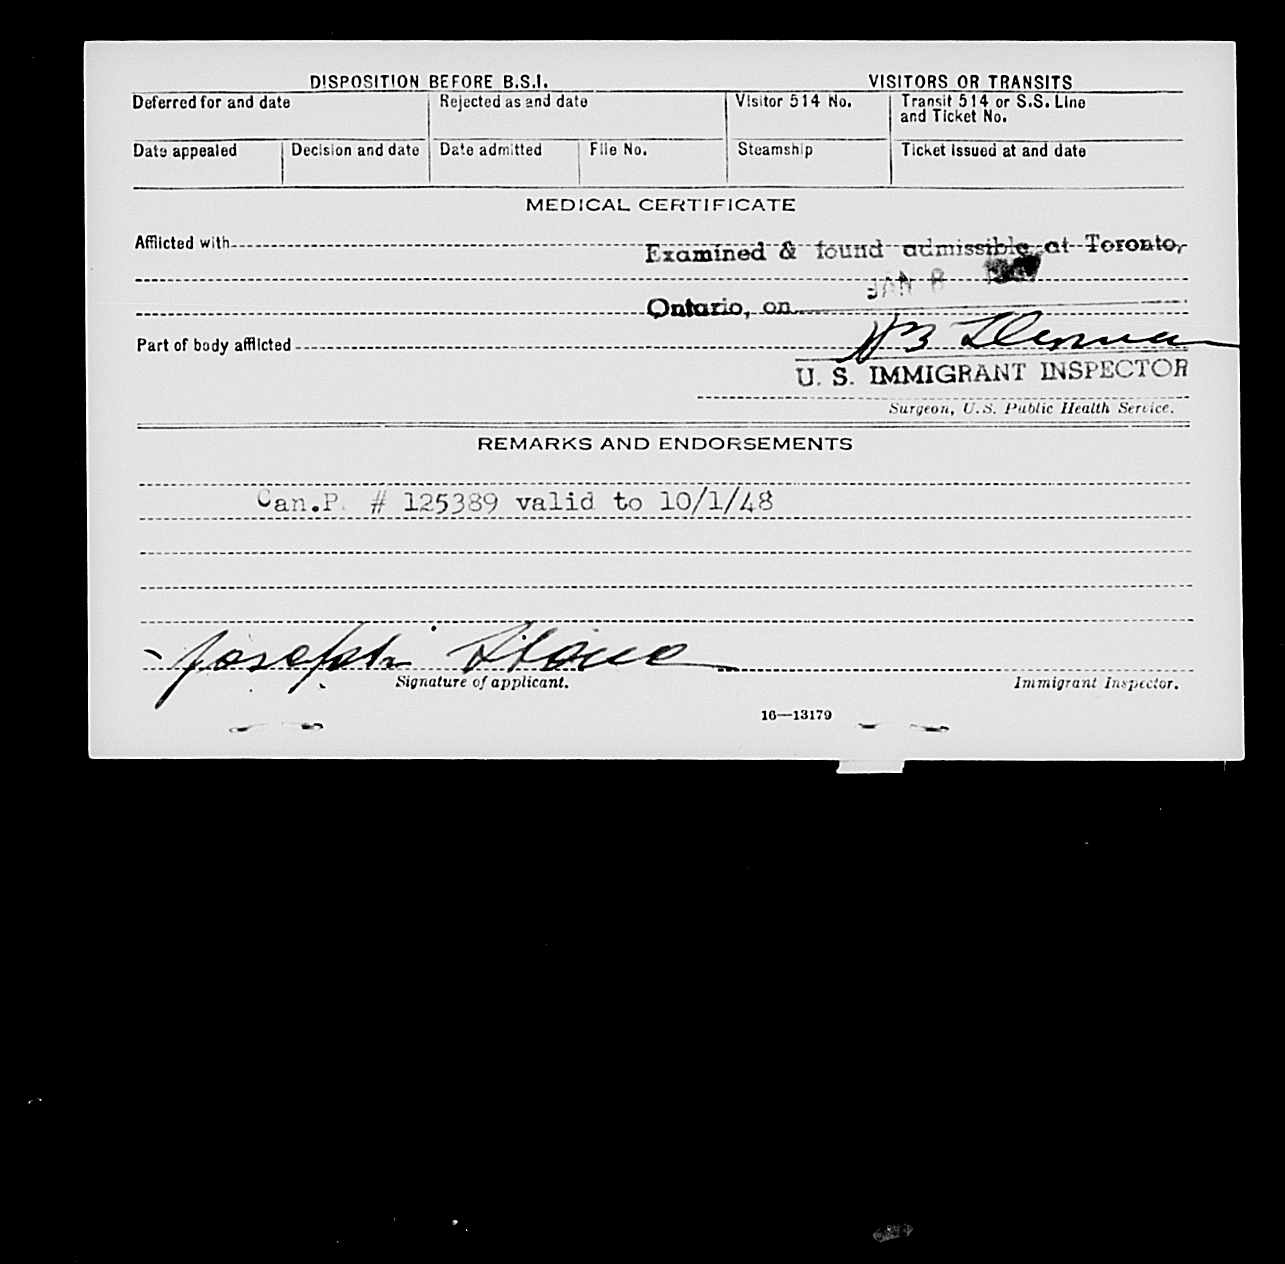 DISPOSITION BEFORE B.S.I.
VISITORS OR TRANSITS
Deferred for and date
Rejected as and date
Visitor 514 No.
Transit 514 or S.S. Line
and Ticket No.
Date appealed
Decision and date
Date admitted
File No.
Steamship
Ticket issued at and date
MEDICAL CERTIFICATE
Afflicted with
Examined & found admissible at Toronto,
JAN 8
Ontario, on
Part of body afflicted
U. S. IMMIGRANT INSPECTOR
Surgeon, U.S. Public Health Service.
REMARKS AND ENDORSEMENTS
Can.P. # 125389 valid to 10/1/48
Joseph Stone
Signature of applicant.
Immigrant Inspector.
16—13179